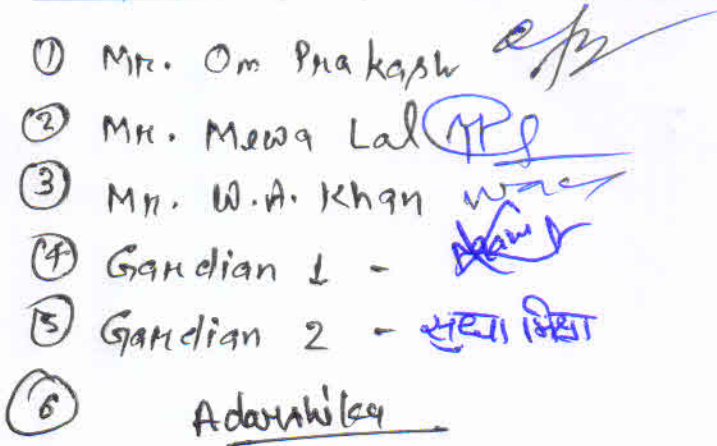 ① Mr. Om Prakash
② Mr. Mewa Lal
③ Mr. W.A. Khan
④ Gardian 1 -
⑤ Gardian 2 - सुधा मिश्रा
⑥ Adarshika